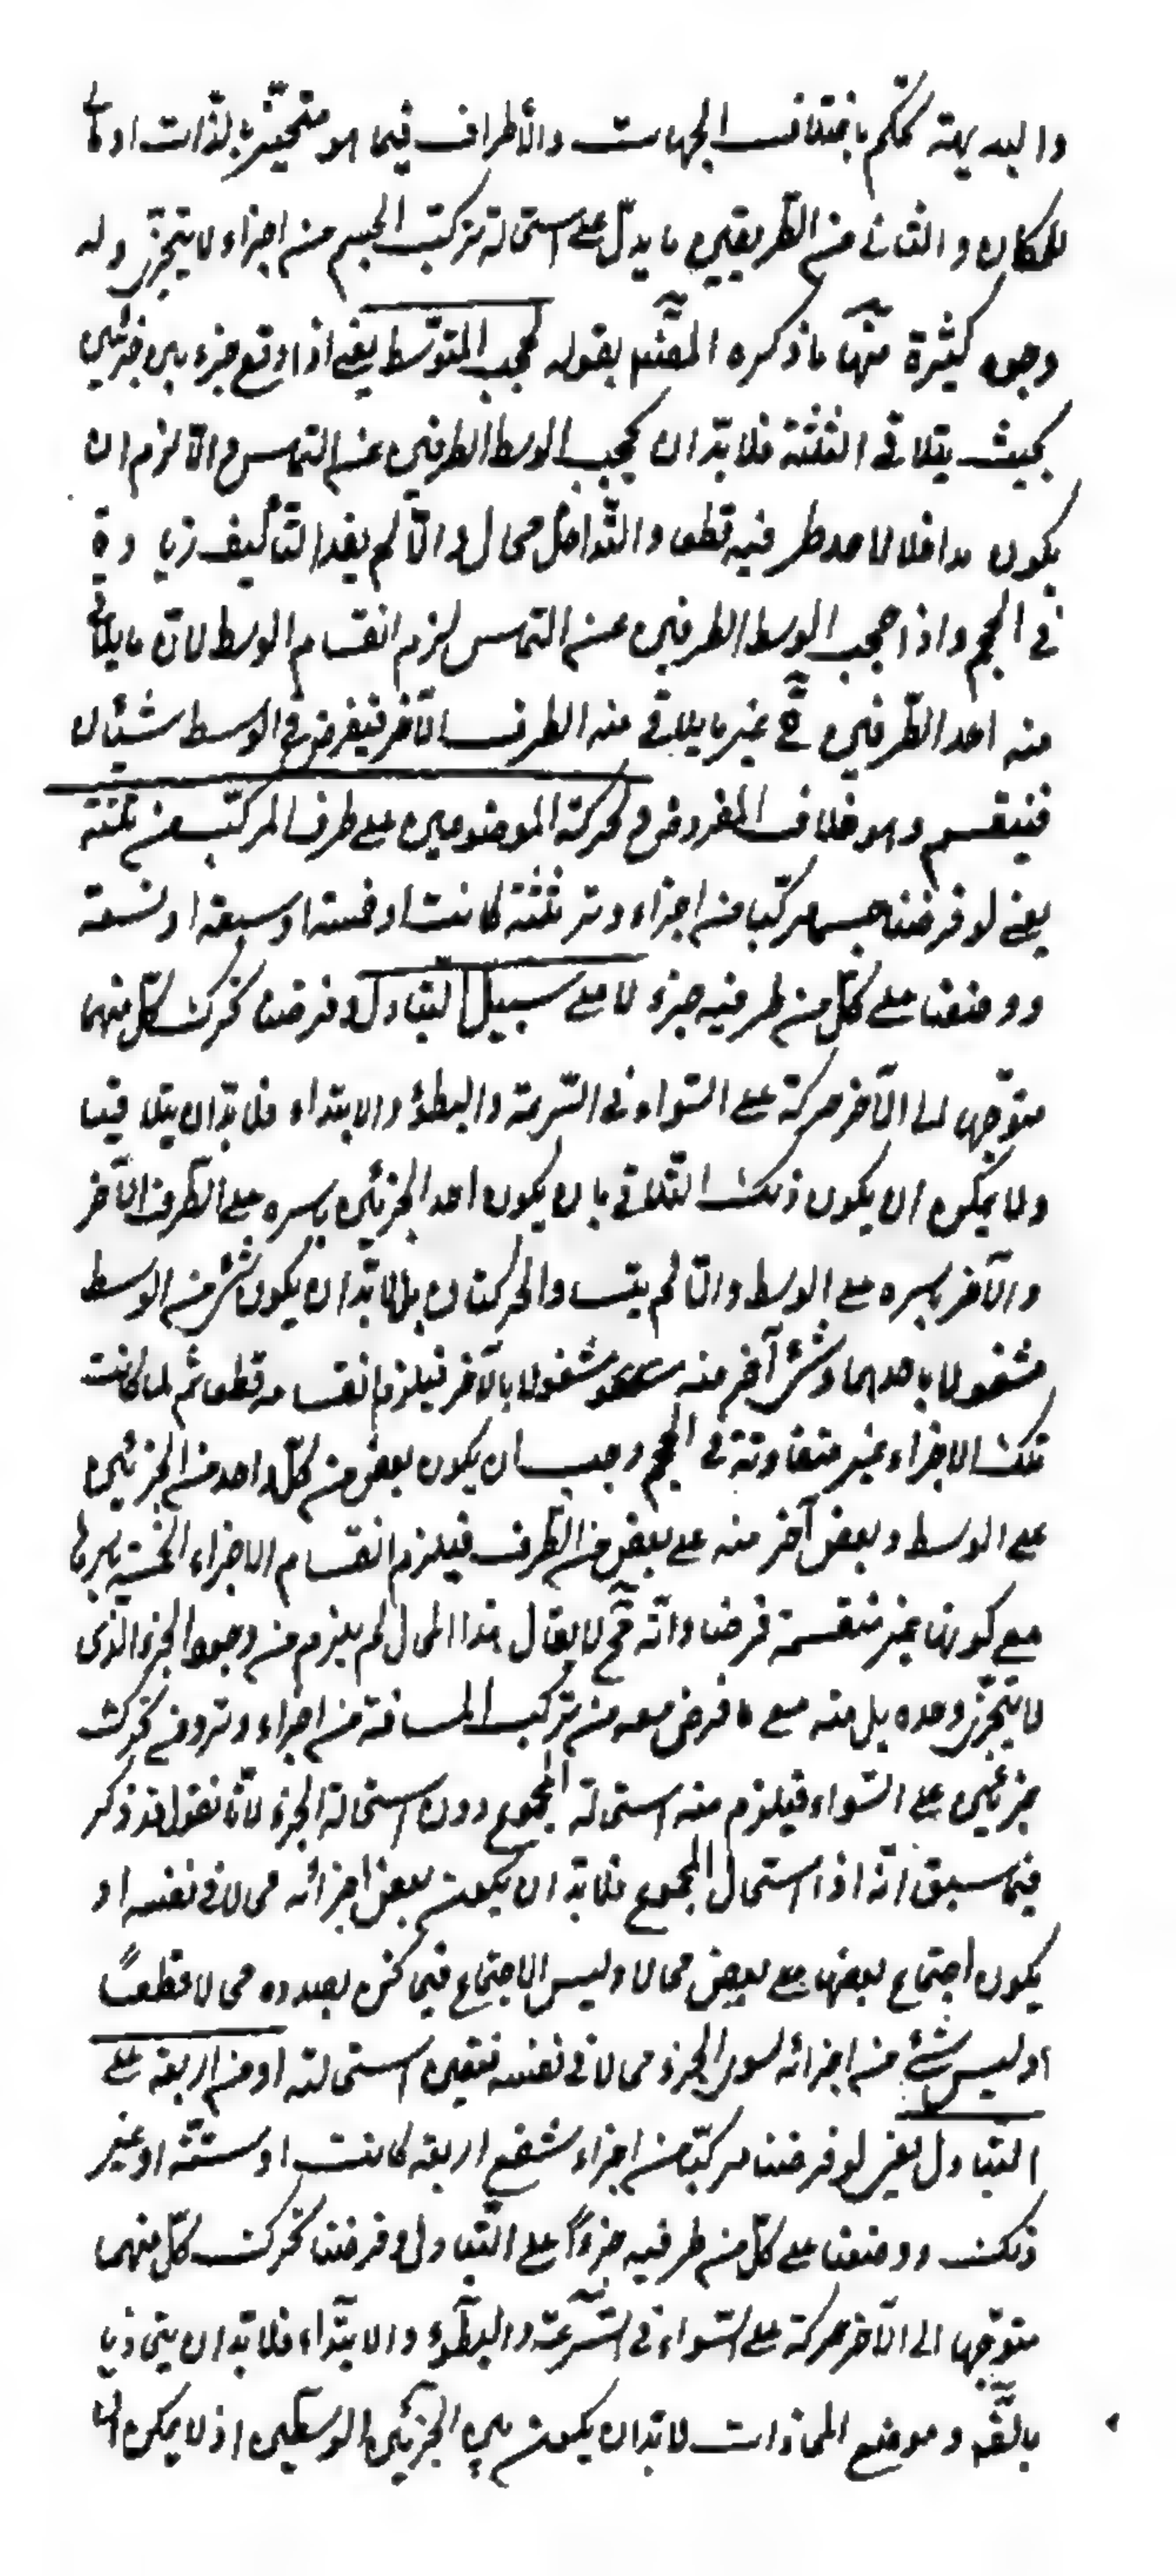 والبديهة تحكم باختلاف الجهات والأطراف فيما هو متحيّز بالذّات او مالئ
للمكان والثانى من الطّريقين ما يدلّ على استحالة تركّب الجسم من اجزاء لا يتجزّى وله
وجوه كثيرة منها ما ذكره المصنّف بقوله لحجب المتوسّط يعنى اذا وقع جزء بين جزئين
بحيث يتلاقى الثلثة فلا بدّ ان يحجب الوسط الطرفين عن التماس والّا لزم ان
يكون مداخلا لاحد طرفيه قطعا والتّداخل محال والّا لم يفد التأليف زيادة
فى الحجم واذا حجب الوسط الطرفين عن التماس لزم انقسام الوسط لانّ ما يلاقى
منه احد الطّرفين ح غير ما يلاقى منه الطرف الآخر فيفرض فى الوسط شيئان
فينقسم وهو خلاف المفروض ولحركة الموضوعين على طرف المركّب من ثلثة
يعنى لو فرضنا جسما مركّبا من اجزاء وتر ثلثة كانت او خمسة او سبعة او تسعة
ووضعنا على كلّ من طرفيه جزء لا على سبيل التبادل وفرضنا تحرك كلّ منهما
متوجّها الى الآخر حركة على السّواء فى السّرعة والبطؤ والابتداء فلا بدّ ان يتلاقيا
ولا يمكن ان يكون ذلك التّلاقى بان يكون احد الجزئين باسره على الطّرف الآخر
والآخر باسره على الوسط والّا لم يتساو الحركتان بل لا بدّ ان يكون شئ من الوسط
مشغولا باحدهما وشئ آخر منه مشغولا بالآخر فيلزم انقسامه قطعا ثم لما كانت
تلك الاجزاء غير متفاوتة فى الحجم وجب ان يكون بعض من كلّ واحد من الجزئين
على الوسط وبعض آخر منه على بعض من الطّرف فيلزم انقسام الاجزاء الخمسة باسرها
مع كونها غير منقسمة فرضا وانّه مح لا يقال هذا المحال لم يلزم من وجود الجزء الذى
لا يتجزّى وحده بل منه مع ما فرض معه من تركّب المسافة من اجزاء وتر ومن تحرك
جزئين على السّواء فيلزم منه استحالة المجموع دون استحالة الجزء لانّا نقول قد ذكر
فيما سبق انّه اذا استحال المجموع فلا بدّ ان يكون بعض اجزائه محالا فى نفسه او
يكون اجتماع بعضها مع بعض محالا وليس الاجتماع فيما نحن بصدده محالا قطعًا
وليس شئ من اجزائه سوى الجزء محالا فى نفسه فتعين استحالته او من اربعة على
التبادل يعنى لو فرضنا مركّبا من اجزاء شفع اربعة كانت او ستّة او غير
ذلك ووضعنا على كلّ من طرفيه جزءًا على التّبادل وفرضنا تحرك كلّ منهما
متوجّها الى الآخر حركة على السّواء فى السّرعة والبطؤ والابتداء فلا بدّ ان يتحاذيا
بالضّرورة وموضع المحاذات لا بدّ ان يكون بين الجزئين الوسطين اذ لا يمكن